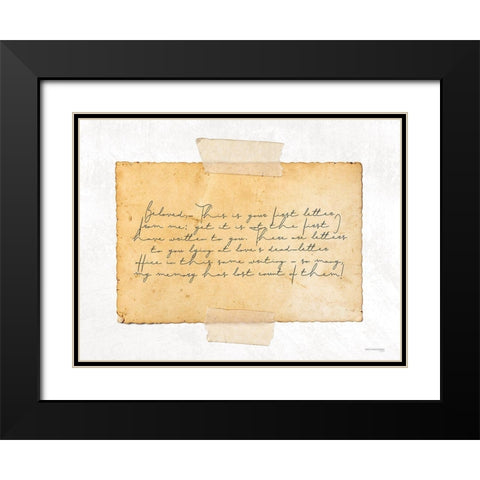 Beloved,— This is your first letter
from me; yet it is not the first I
have written to you. There are letters
to you lying at love's dead-letter
office in this same writing — so many,
my memory has lost count of them!